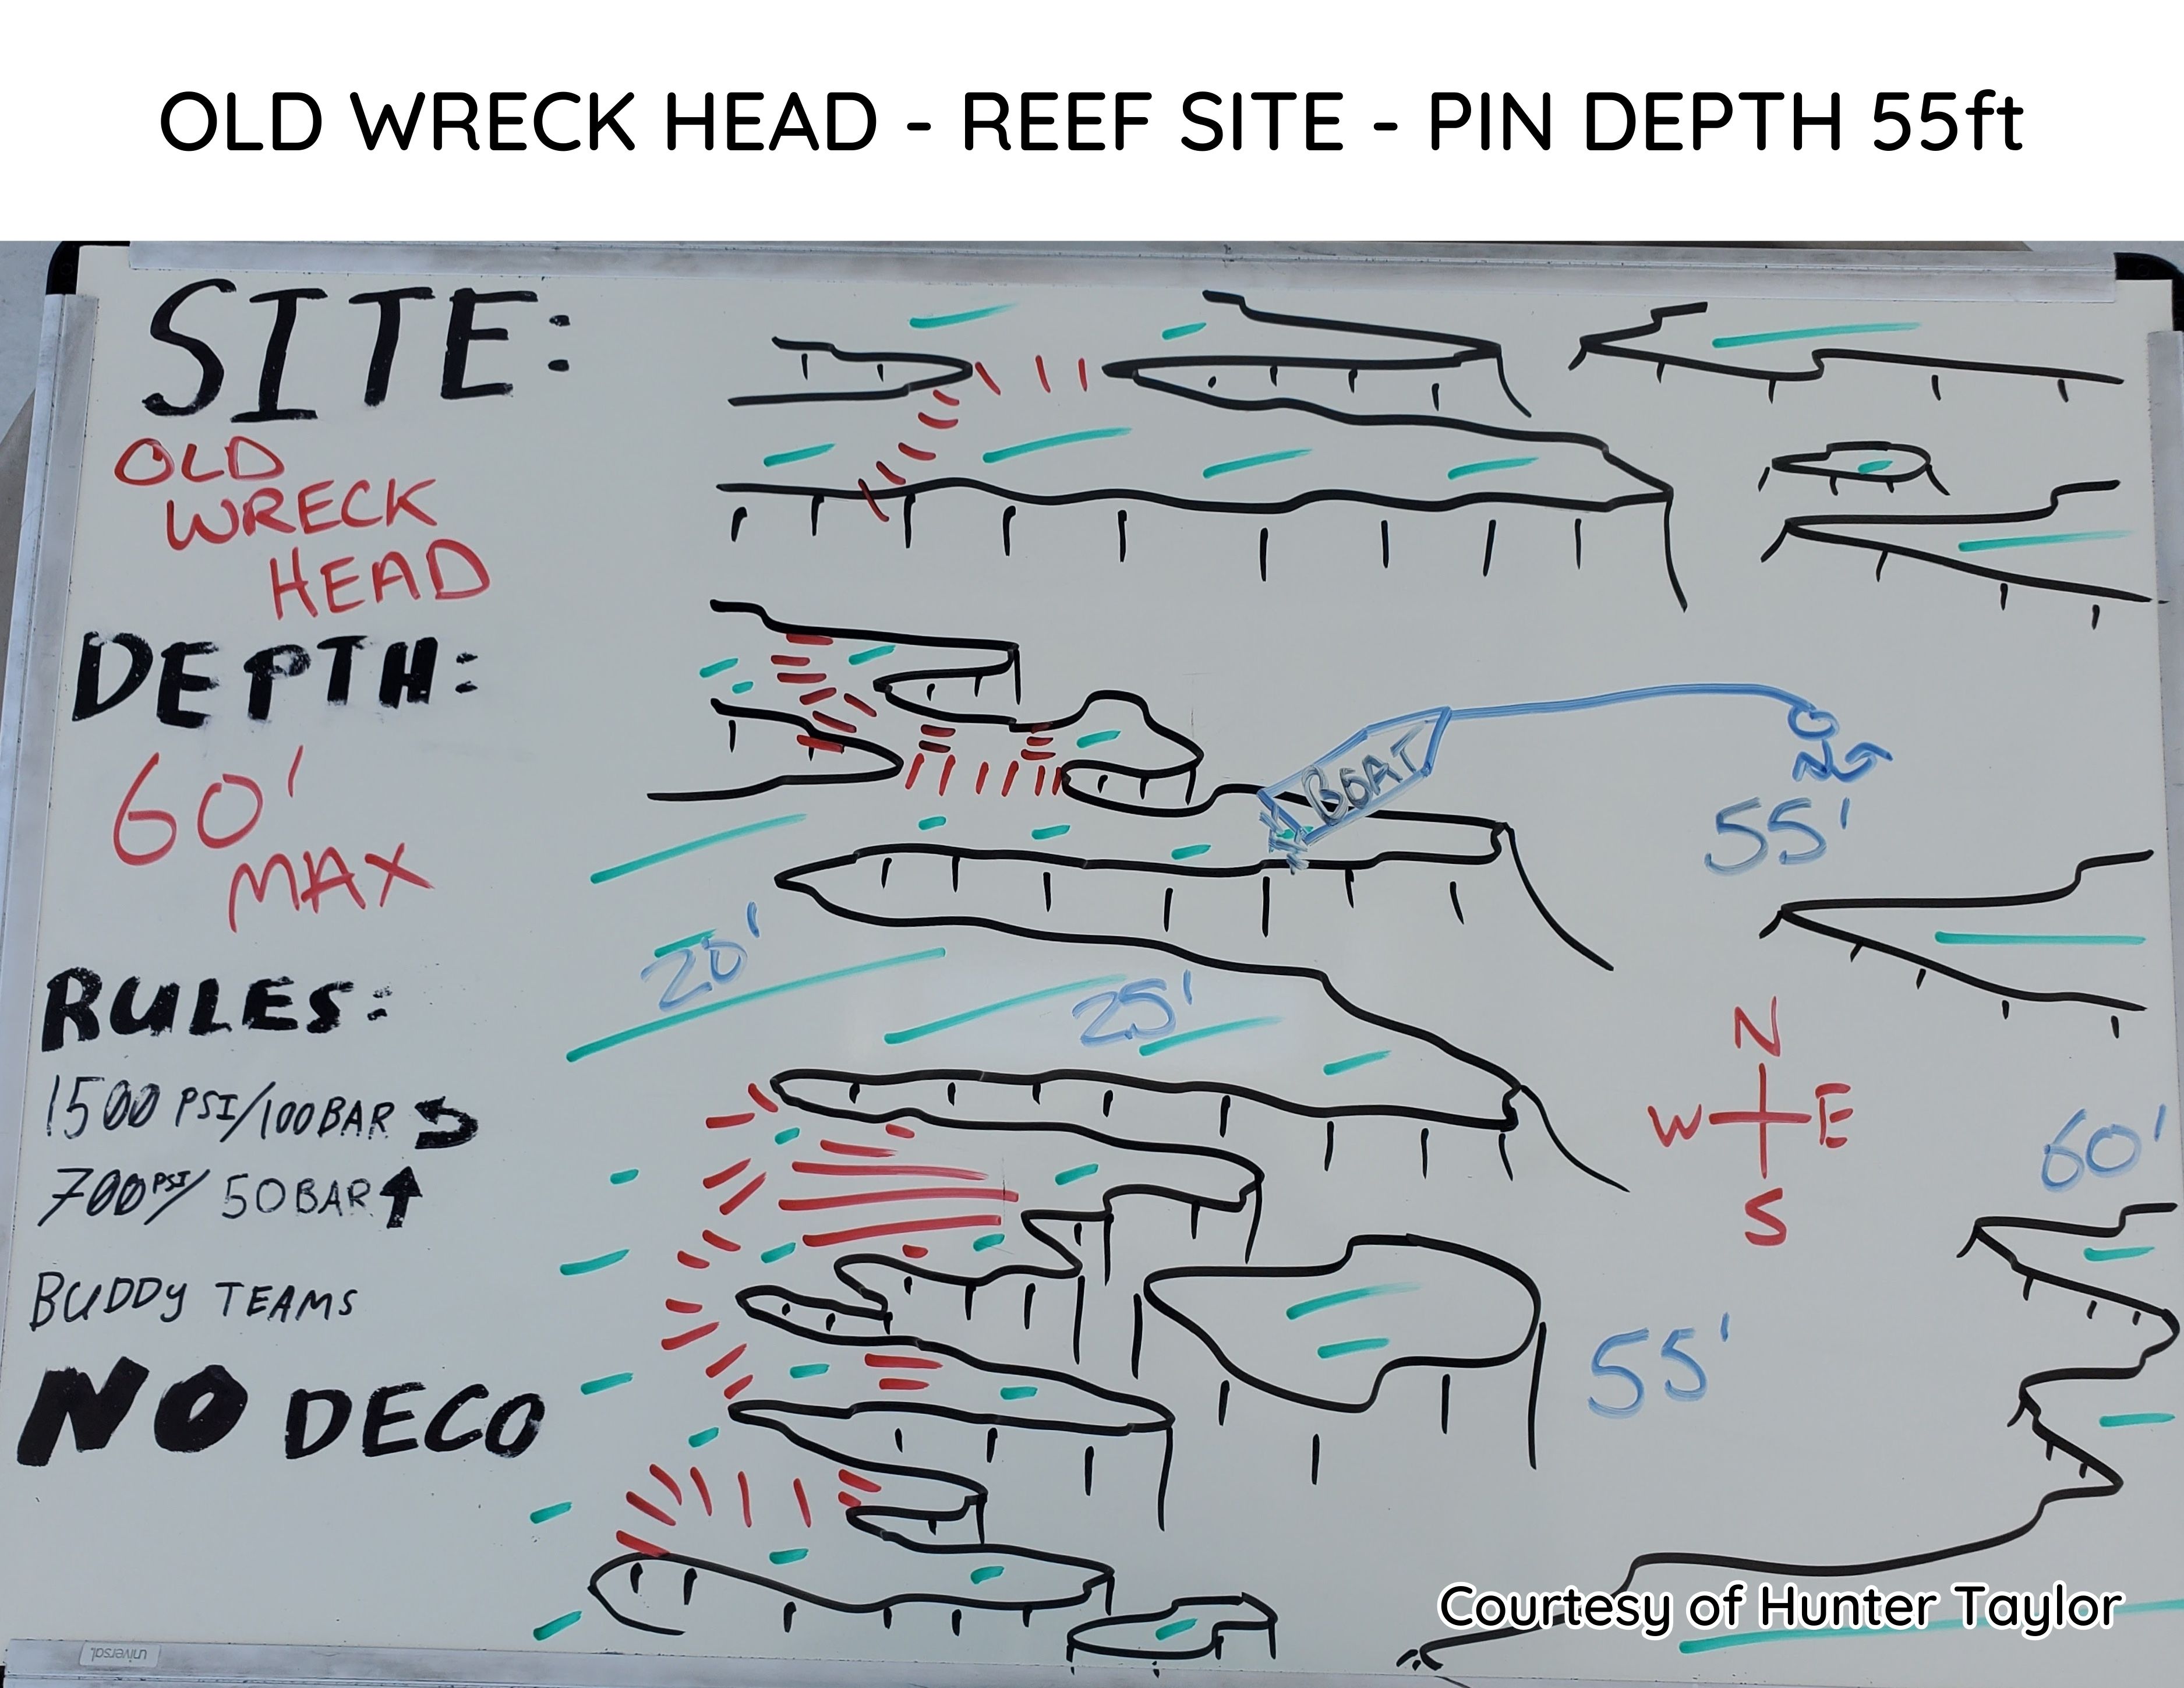 OLD WRECK HEAD - REEF SITE - PIN DEPTH 55ft
SITE:
OLD
WRECK
HEAD
DEPTH:
60'
MAX
RULES:
1500 PSI/100BAR
700PSI/ 50BAR
BUDDY TEAMS
NO DECO
BOAT
55'
20'
25'
N
W E
S
60'
55'
Courtesy of Hunter Taylor
universal